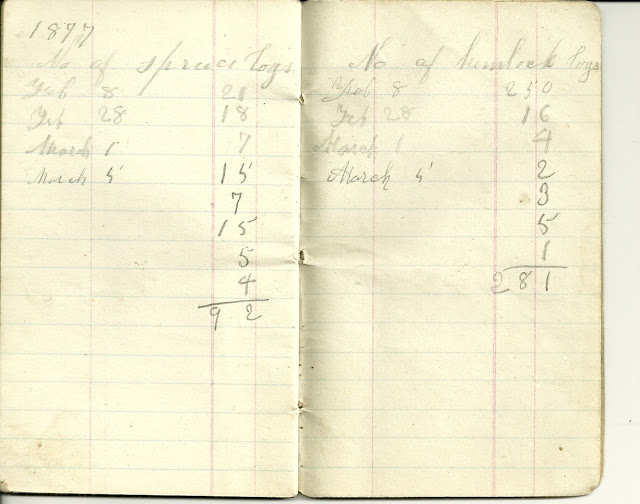 1877
No of spruce logs
Feb 8 21
Feb 28 18
March 1 7
March 5 15
7
15
5
4
92
No of hemlock logs
Feb 8 250
Feb 28 16
March 1 4
March 5 2
3
5
1
281